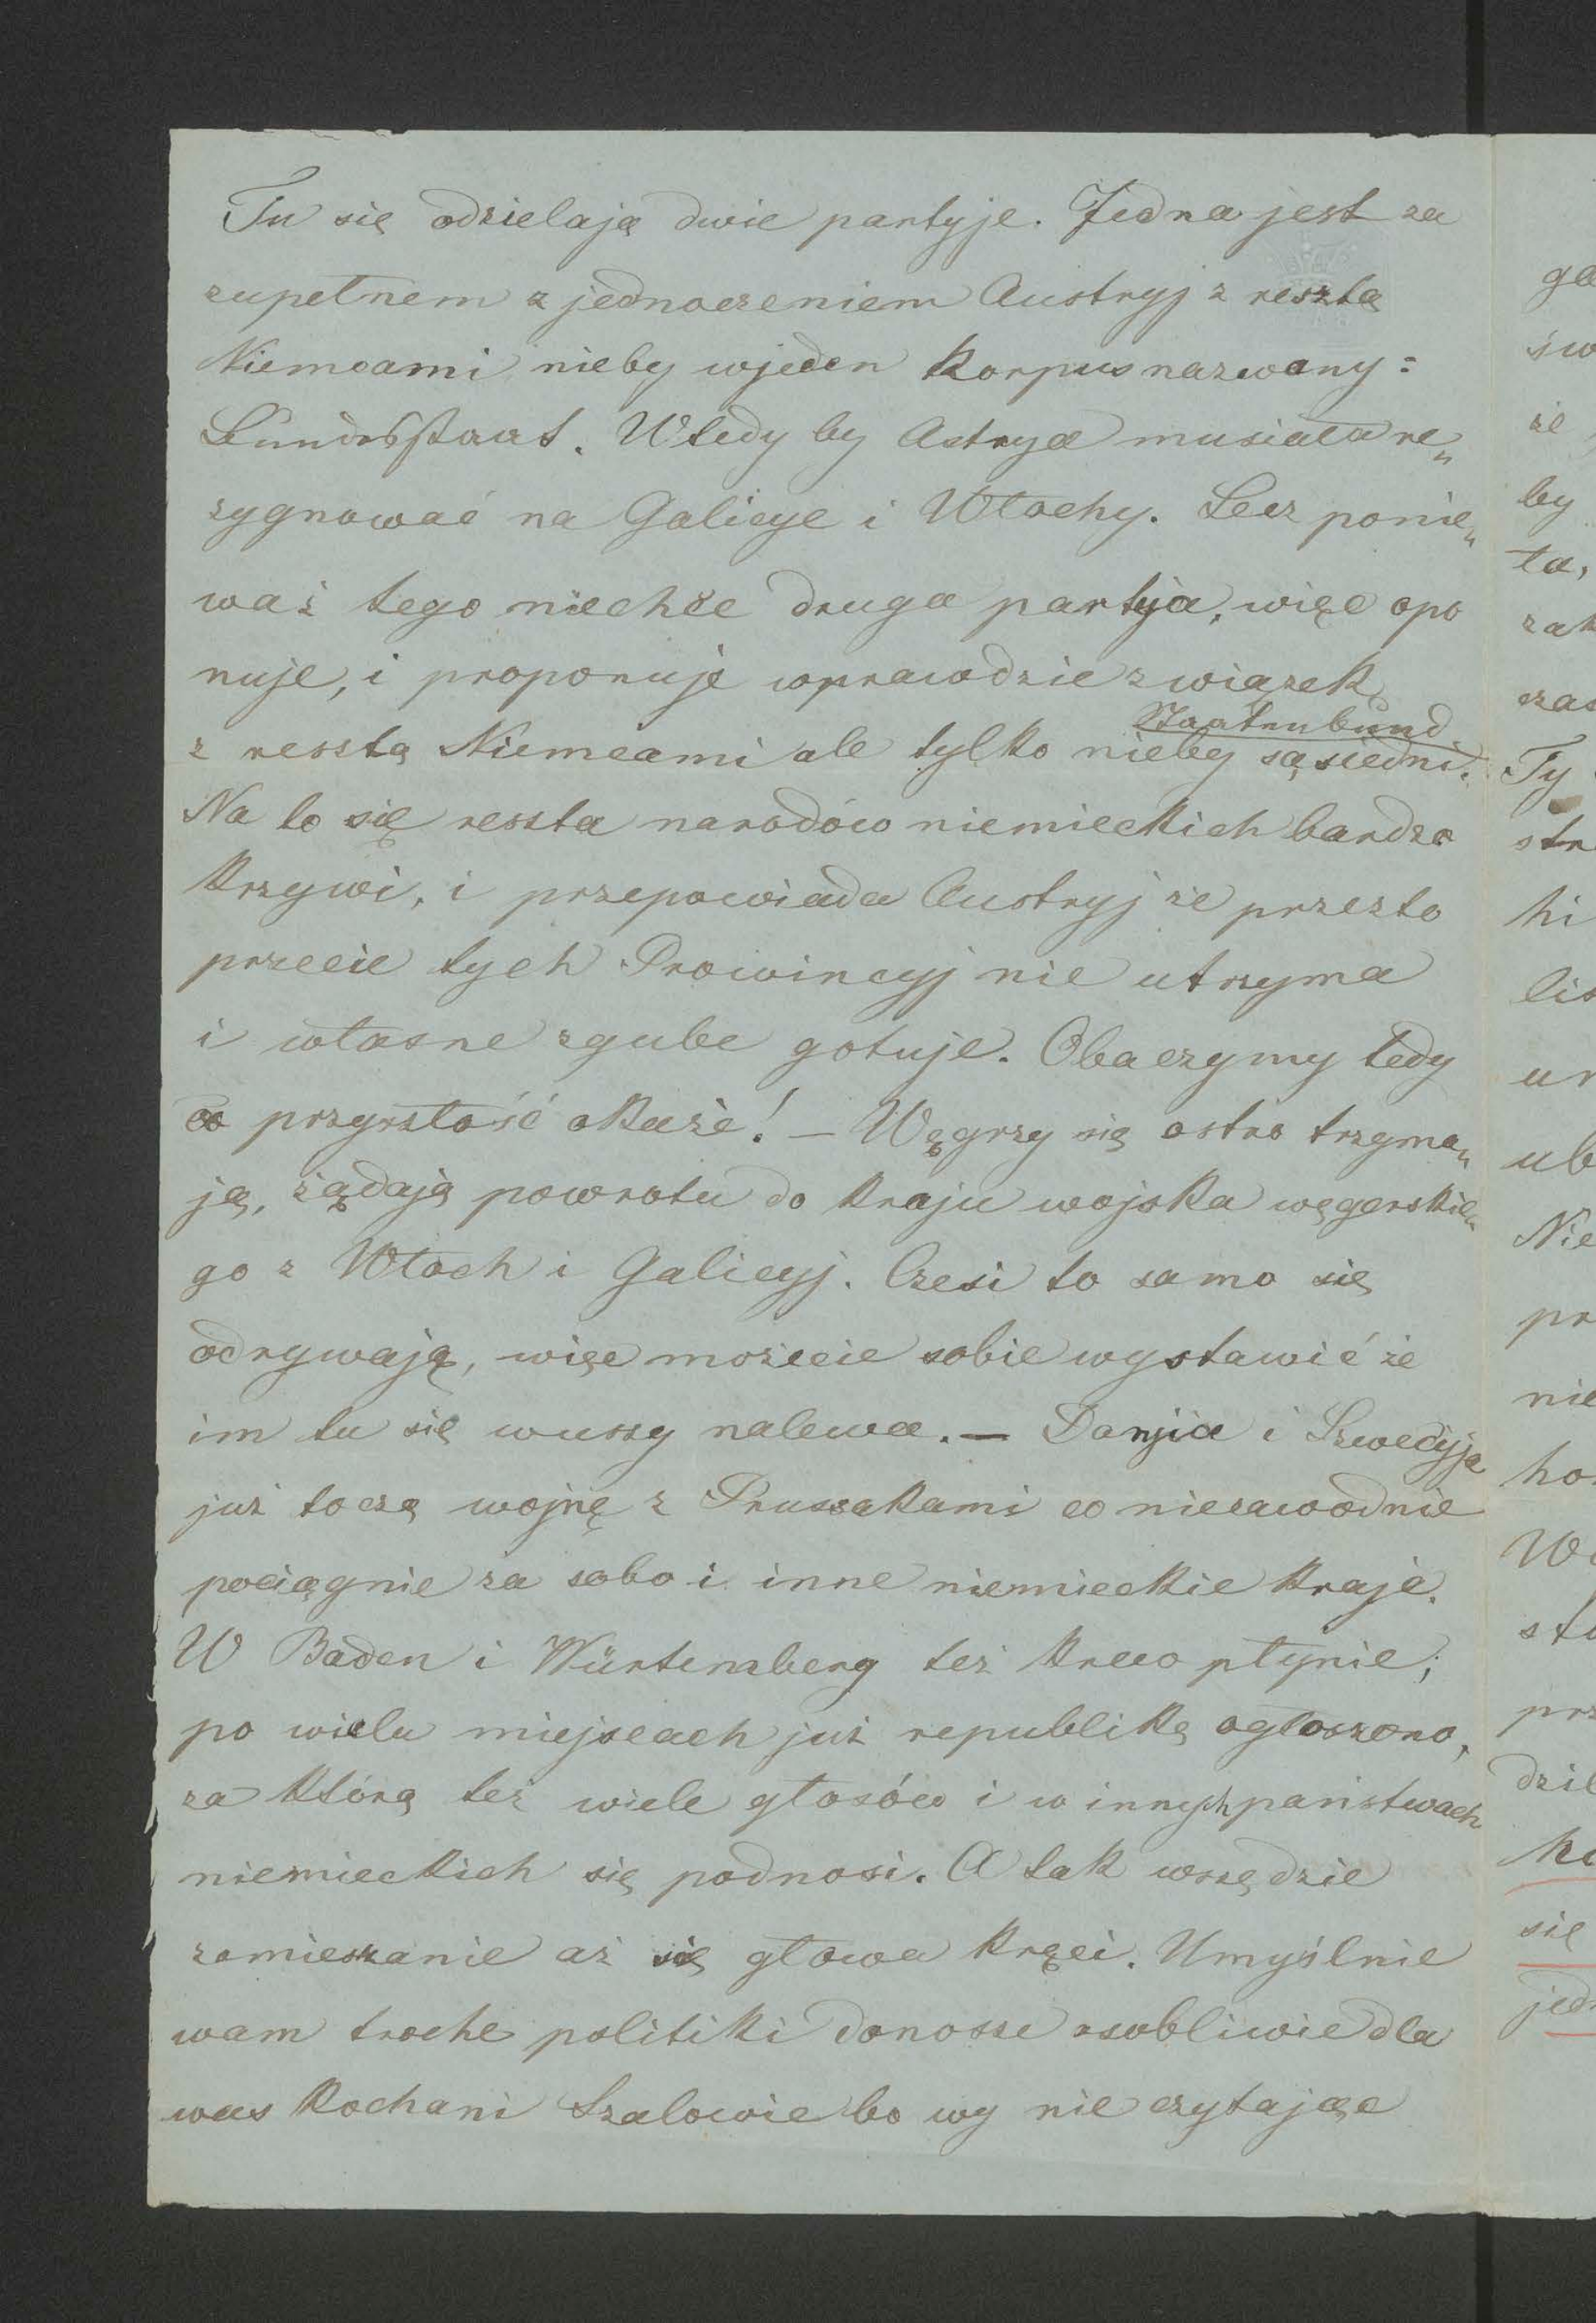 Tu się odzielają dwie partyje. Jedna jest za
zupełnem zjednoczeniem Austryj z resztą
Niemcami nieby wjeden korpus nazwany:
Bundesstaat. Wtedy by Astrya musiała re„
zygnować na Galicye i Włochy. Lecz ponie„
waż tego niechce druga partija, więc opo
nuje, i proponuje wprawdzie związek
Staatenbund
z resztą Niemcami ale tylko nieby sąsiedni.
Na to się reszta narodów niemieckich bardzo
krzywi, i przepowiada Austryj że przezto
przecie tych Prowincyj nie utrzyma
i własne zgube gotuje. Obaczymy tedy
co przyszłość okaże! — Węgrzy się ostro trzyma„
ją, żądają powrotu do kraju wojska węgerskie„
go z Włoch i Galicyj. Czesi to samo się
odrywają, więc możecie sobie wystawić że
im tu się wuszy nalewa. — Danjia i Szwedyja
już toczą wojnę z Prussakami co niezawodnie
pociągnie za sobo i inne niemieckie kraje.
W Baden i Würtemberg też krew płynie;
po wielu miejscach już republikę ogłoszono,
za którą też wiele głosów i w innych państwach
niemieckich się podnosi. A tak wszędzie
zamieszanie aż się głowa kręci. Umyślnie
wam troche politiki donosze osobliwie dla
was kochani Szalowie bo wy nie czytając
ge
św
że
by
ta,
zak
czas
Ty
str
hi
lis
ur
ub
Nie
pr
nie
ho
W
sto
prz
dzie
ko
się
jed